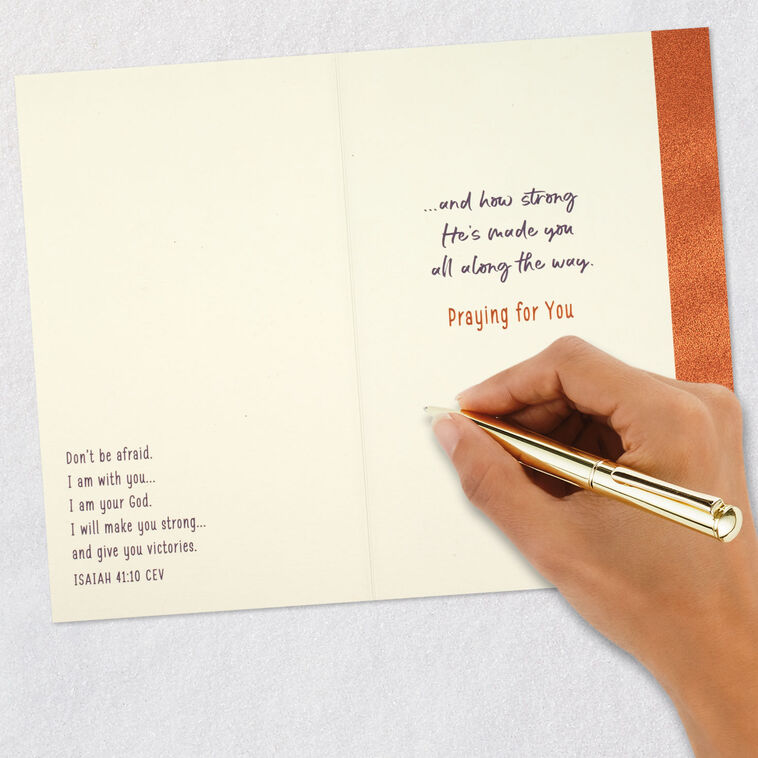 Don't be afraid.
I am with you...
I am your God.
I will make you strong...
and give you victories.
ISAIAH 41:10 CEV
...and how strong
He's made you
all along the way.
Praying for You